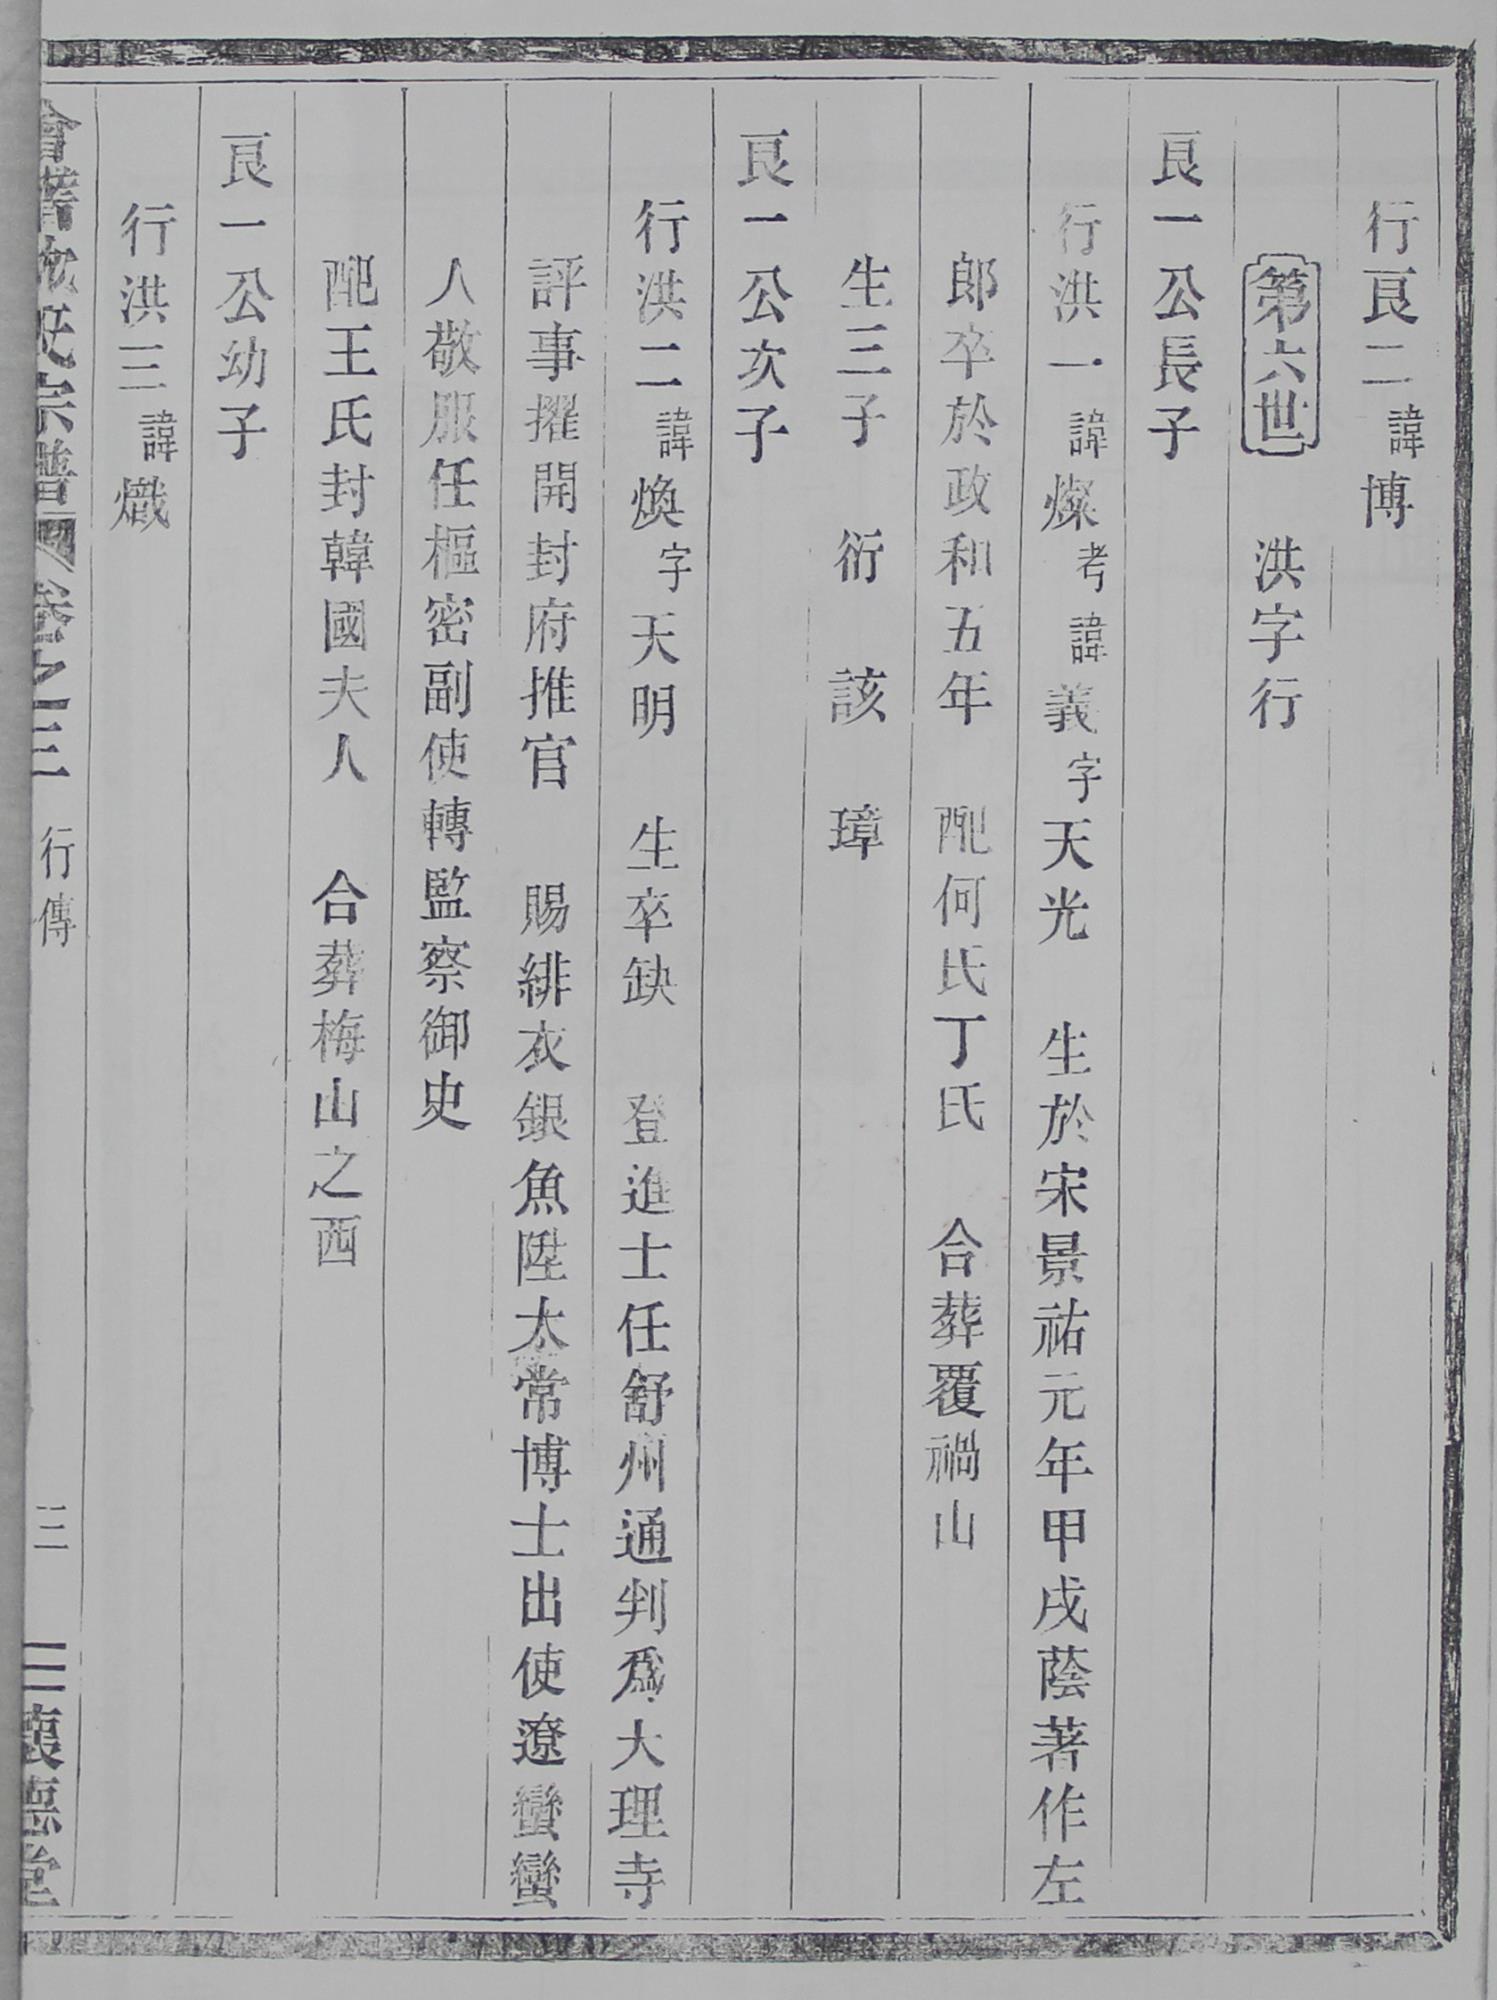 行艮二諱博
第六世 洪字行
艮一公長子
行洪一諱燦考諱義字天光 生於宋景祐元年甲戌蔭著作左
郎卒於政和五年 配何氏丁氏 合葬覆禍山
生三子 衍 該 璋
艮一公次子
行洪二諱煥字天明 生卒缺 登進士任舒州通判爲大理寺
評事擢開封府推官 賜緋衣銀魚陞太常博士出使遼蠻蠻
人敬服任樞密副使轉監察御史
配王氏封韓國夫人 合葬梅山之西
艮一公幼子
行洪三諱熾
會稽 氏宗譜 卷之三 行傳 三 三懷德堂